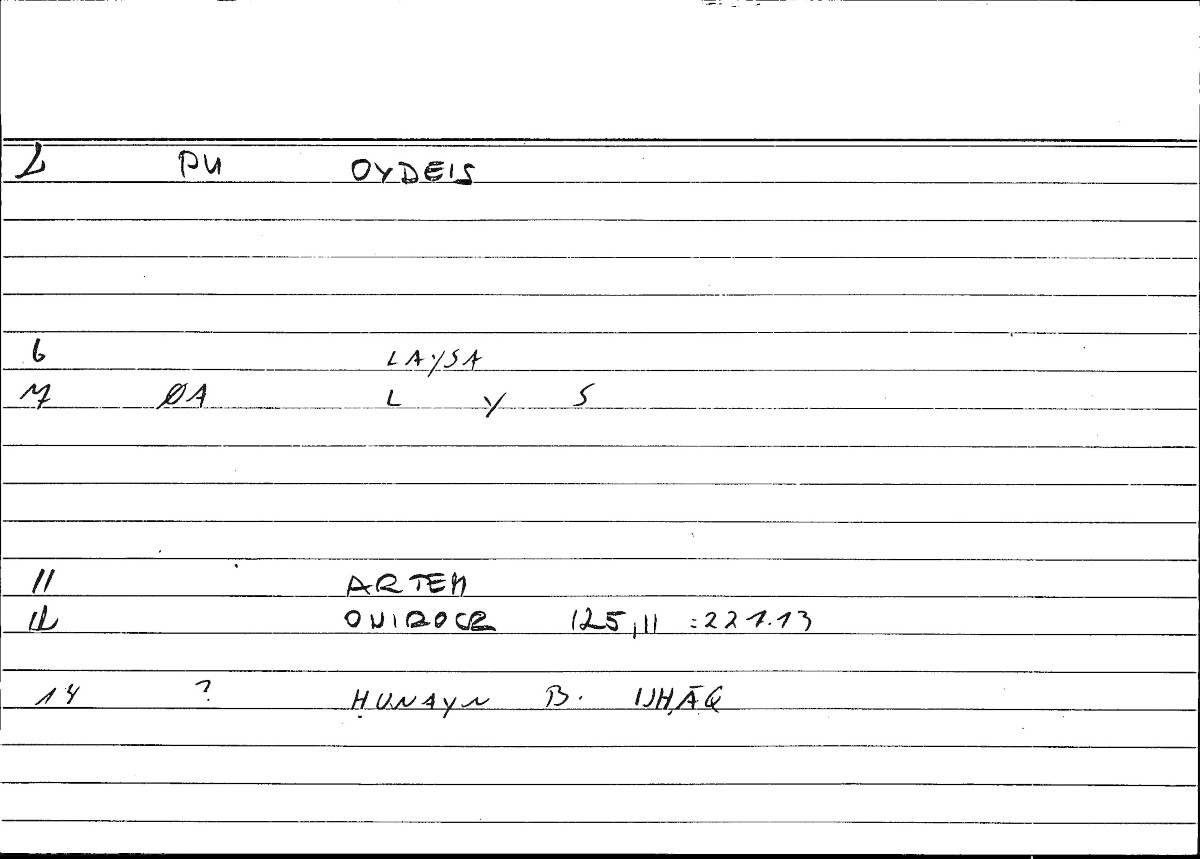 2 PN OYDEIS
6 LAYSA
7 ØA L Y S
11 ARTEM
12 ONIROCR 125,11 :221.13
14 ? ḤUNAYN B. ISḤĀQ